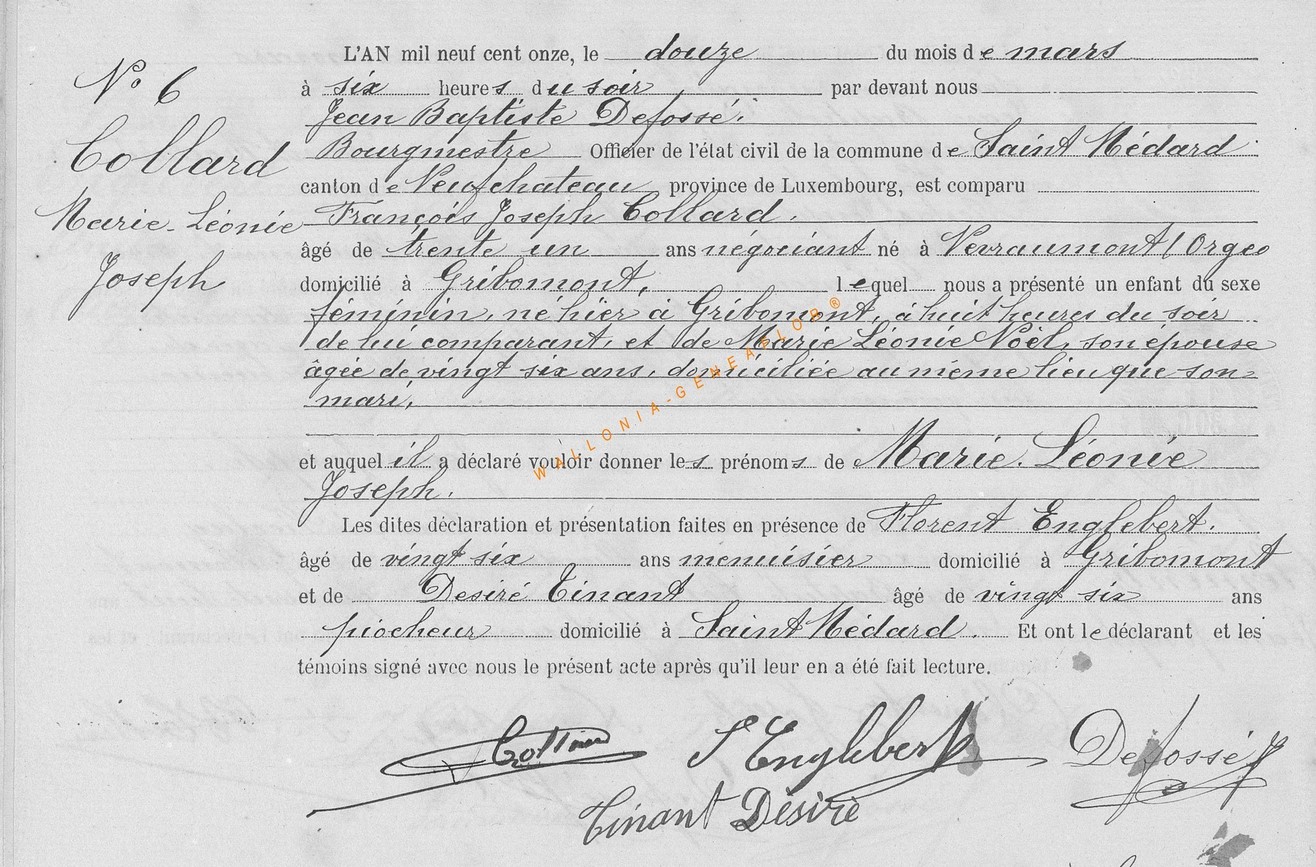 L'AN mil neuf cent onze, le douze du mois de mars
N° 6
à six heures du soir par devant nous
Jean Baptiste Defossé.
Collard
Bourgmestre Officier de l'état civil de la commune de Saint Médard
canton de Neufchateau, province de Luxembourg, est comparu
Marie-Léonie
François Joseph Collard.
âgé de trente un ans négociant né à Nevraumont (Orgeo
Joseph
domicilié à Gribomont, lequel nous a présenté un enfant du sexe
féminin, né hier à Gribomont, à huit heures du soir
de lui comparant, et de Marie Léonie Noël, son épouse
âgée de vingt six ans, domiciliée au même lieu que son
mari,
WALLONIA-GENEABLOG®
et auquel il a déclaré vouloir donner les prénoms de Marie. Léonie
Joseph.
Les dites déclaration et présentation faites en présence de Florent Englebert.
âgé de vingt six ans menuisier domicilié à Gribomont
et de Desiré Tinant âgé de vingt six ans
piocheur domicilié à Saint Médard. Et ont le déclarant et les
témoins signé avec nous le présent acte après qu'il leur en a été fait lecture.
Collard F Englebert Defossé
Tinant Désiré